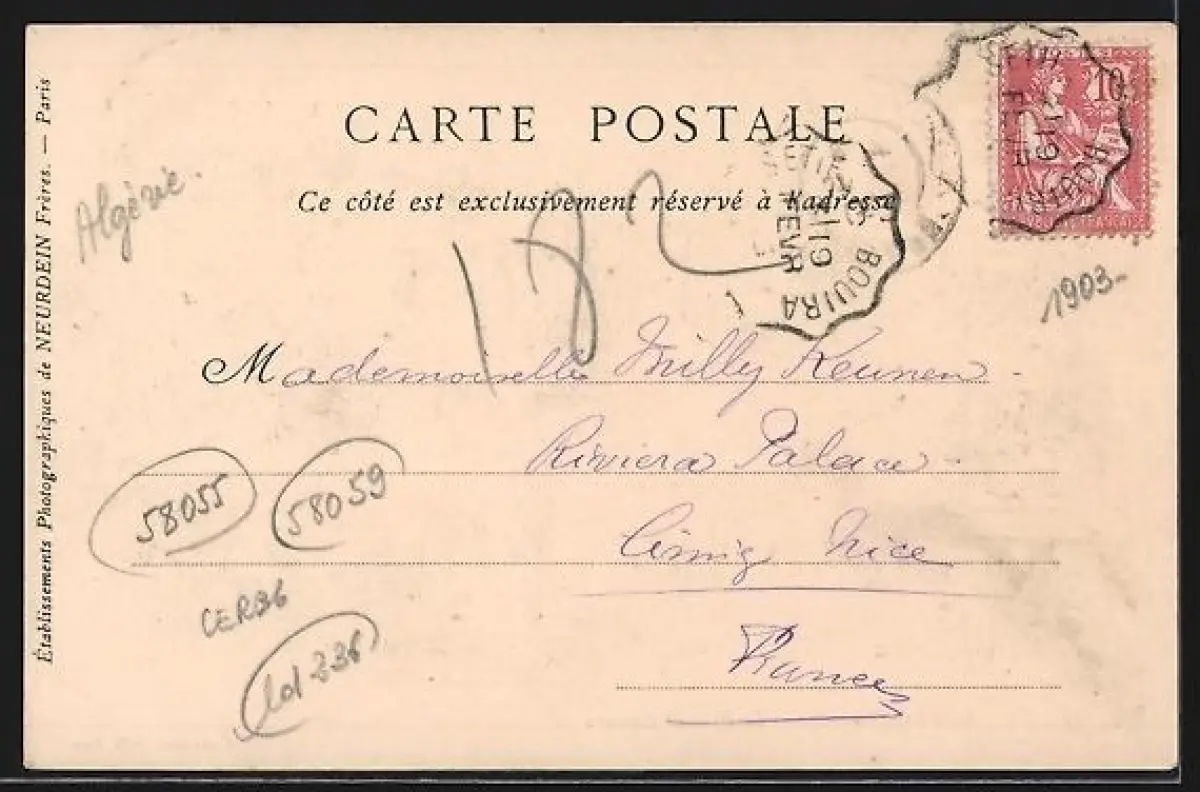 CARTE POSTALE
Ce côté est exclusivement réservé à l'adresse
Établissements Photographiques de NEURDEIN Frères. — Paris
Algérie.
10
BOUIRA
19
FEVR
BOUIRA
1903-
Mademoiselle Milly Keunen -
Riviera Palace -
Cimiez Nice
France
58055
58059
CER36